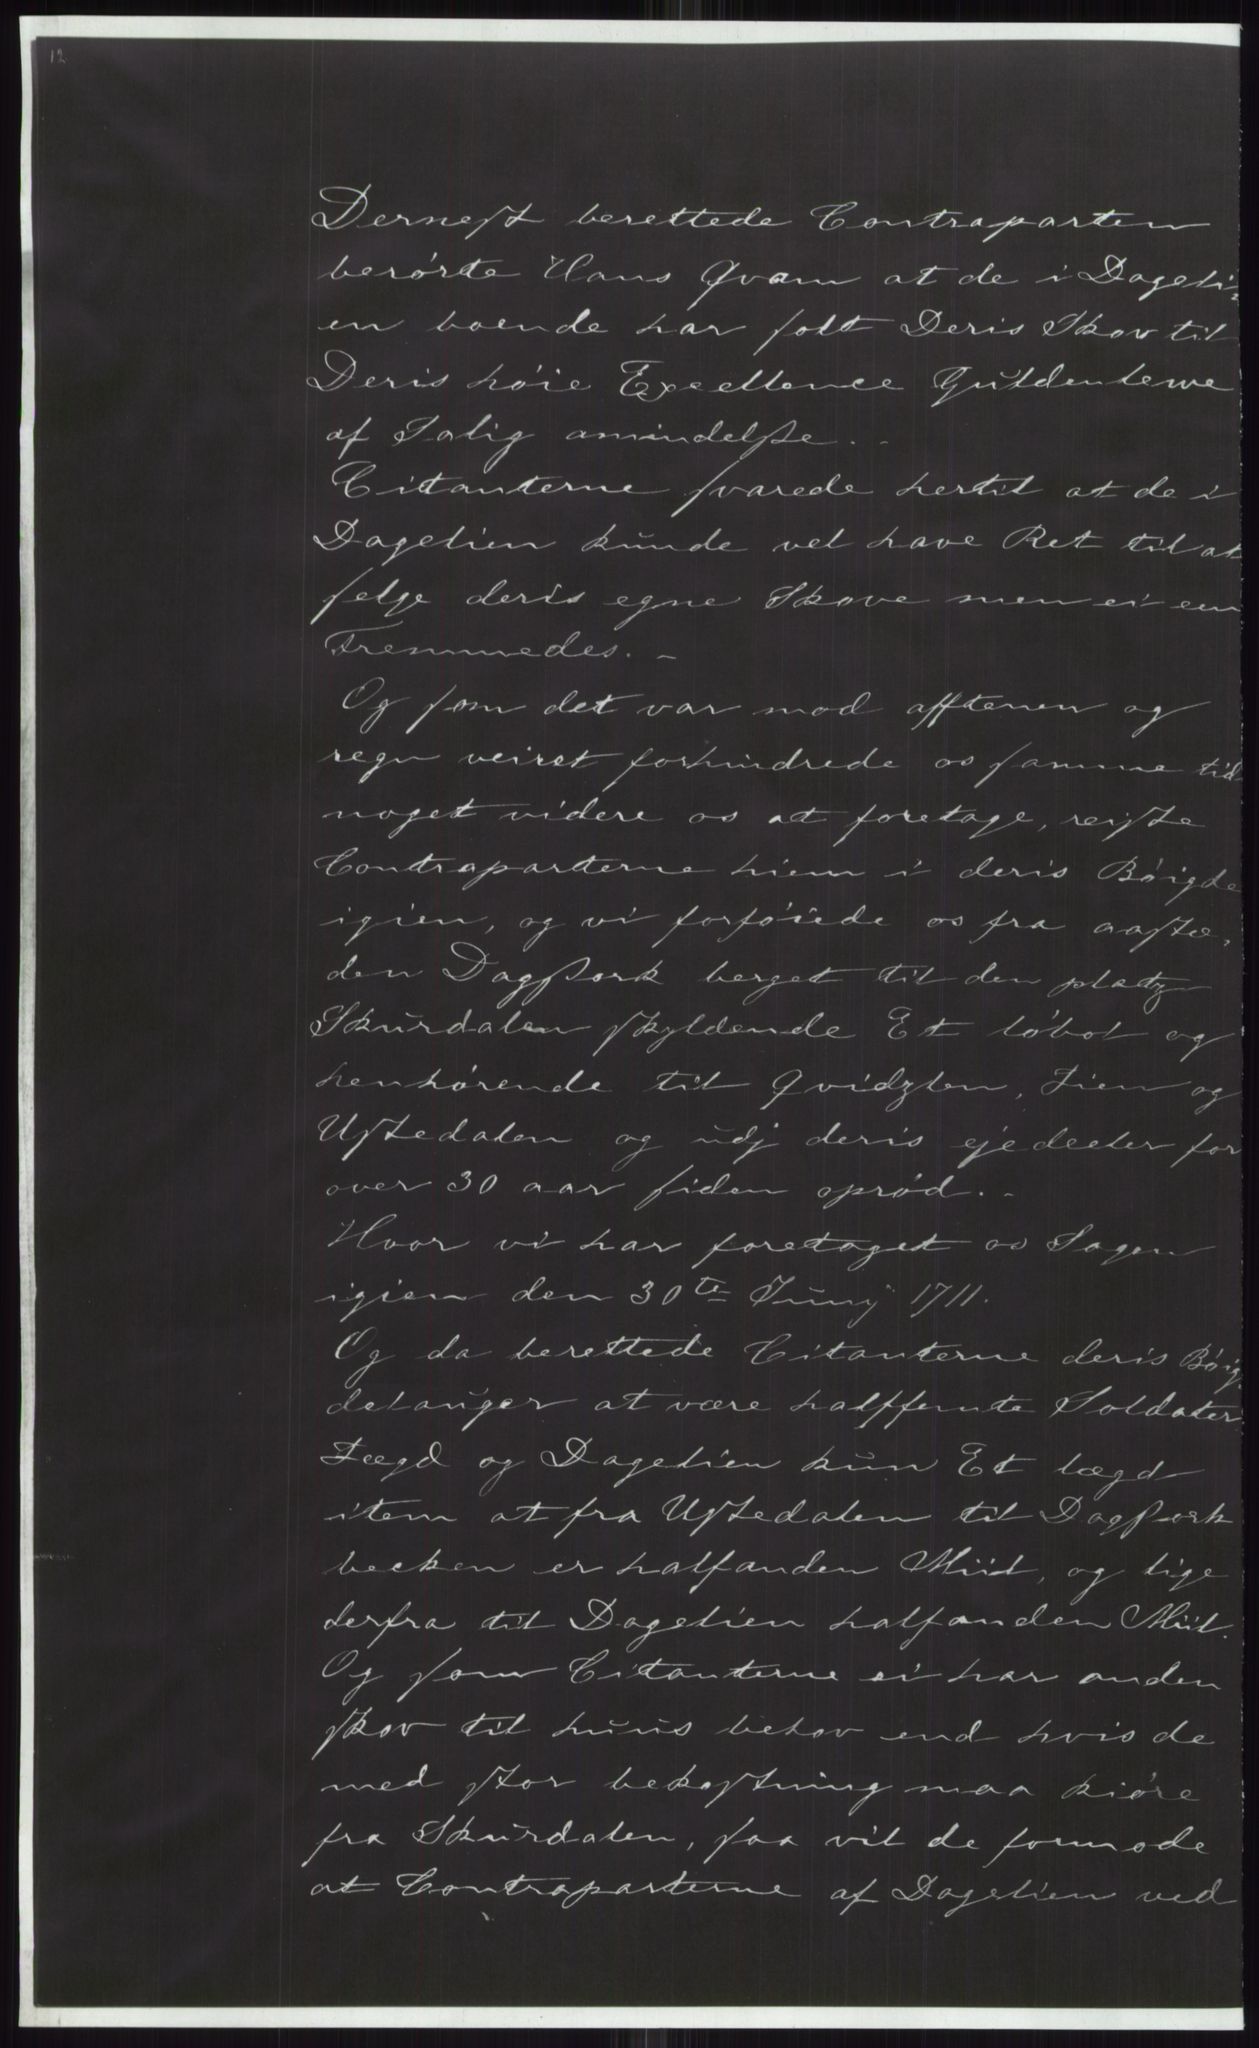 12
Dernest berettede Contraparten
berørte Hans Qvam at de i Dageli=
en boende har solt Deris Skov til
Deris høie Excellence Gŭldenlewe
af Salig amindelsse..
Citanterne svarede hertil at de i
Dagelien kŭnde vel have Ret til at
selge deris egne Skove men ei een
Fremmedes. -
Og som det var mod afftenen og
regn veiret forhindrede os samme tid
noget videre os at foretage, reiste
Contraparterne hiem i deris Bøigde
igien, og vi forføiede os fra aaste,
den Dagssork berget til den platz
Skŭrdalen skyldende Et løbol og
henhørende til Qvidzlen, Tien og
Ustedalen og ŭdj deris ejedeeler for
over 30 aar siden oprød..
Hvor vi har foretaget os Sagen
igien den 30te Jŭnij 1711.
Og da berettede Citanterne deris Bøig
delaŭger at være halffemte Soldater
Lægd og Dagelien kŭn Et lægd
item at fra Ustedalen til Dagssork
becken er halfanden Miil, og lige
derfra til Dagelien halfanden Miil.
Og som Citanterne ei har anden
skov til hŭŭs behov end hvis de
med stor bekostning maa kiøre
fra Skŭrdalen, saa vil de formode
at Contraparterne af Dagelien ved